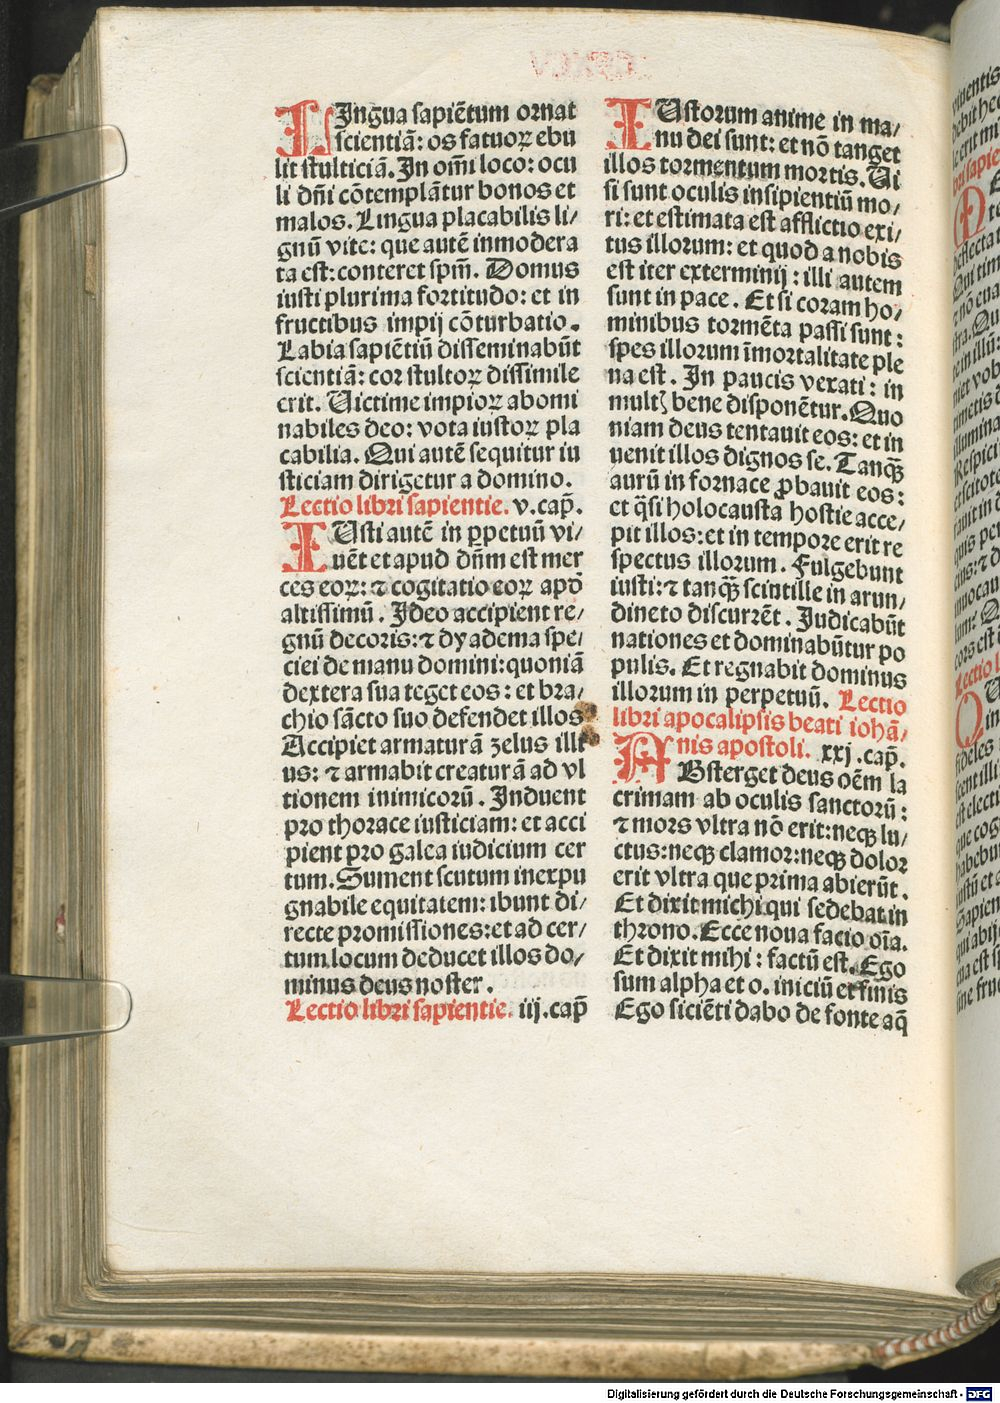 LIngua sapiētum ornat
scientiā: os fatuoꝝ ebu
lit stulticiā. In om̄i loco: ocu
li dn̄i cōtemplātur bonos et
malos. Lingua placabilis li⸗
gnū vite: que autē inmodera
ta est: conteret spm̄. Domus
iusti plurima fortitudo: et in
fructibus impij cōturbatio.
Labia sapiētiū disseminabūt
scientiā: cor stultoꝝ dissimile
erit. Uictime impioꝝ abomi
nabiles deo: vota iustoꝝ pla
cabilia. Qui autē sequitur iu
sticiam dirigetur a domino.
Lectio libri sapientie. v. cap̄.
IUsti autē in ꝑpetuū vi⸗
uēt et apud dn̄m est mer
ces eoꝝ: ⁊ cogitatio eoꝝ apd̄
altissimū. Ideo accipient re⸗
gnū decoris: ⁊ dyadema spe⸗
ciei de manu domini: quoniā
dextera sua teget eos: et bra⸗
chio sācto suo defendet illos
Accipiet armaturā zelus illi
us: ⁊ armabit creaturā ad vl
tionem inimicorū. Induent
pro thorace iusticiam: et acci
pient pro galea iudicium cer
tum. Sument scutum inexpu
gnabile equitatem: ibunt di⸗
recte promissiones: et ad cer⸗
tum locum deducet illos do⸗
minus deus noster.
Lectio libri sapientie. iij. cap̄
IUstorum anime in ma⸗
nu dei sunt: et nō tanget
illos tormentum mortis. Ui
si sunt oculis insipientiū mo⸗
ri: et estimata est afflictio exi⸗
tus illorum: et quod a nobis
est iter exterminij: illi autem
sunt in pace. Et si coram ho⸗
minibus tormēta passi sunt:
spes illorum īmortalitate ple
na est. In paucis vexati: in
multꝫ bene disponētur. Quo
niam deus tentauit eos: et in
uenit illos dignos se. Tanꝙ̄
aurū in fornace ꝓbauit eos:
et q̄si holocausta hostie acce⸗
pit illos: et in tempore erit re
spectus illorum. Fulgebunt
iusti: ⁊ tanꝙ̄ scintille in arun⸗
dineto discurrēt. Iudicabūt
nationes et dominabūtur po
pulis. Et regnabit dominus
illorum in perpetuū. Lectio
libri apocalipsis beati iohā⸗
nis apostoli. xxj. cap̄.
ABsterget deus oēm la
crimam ab oculis sanctorū:
⁊ mors vltra nō erit: neqꝫ lu⸗
ctus: neqꝫ clamor: neqꝫ dolor
erit vltra que prima abierūt.
Et dixit michi qui sedebat in
throno. Ecce noua facio oīa.
Et dixit mihi: factū est. Ego
sum alpha et o. iniciū et finis
Ego siciēti dabo de fonte aq̄
Digitalisierung gefördert durch die Deutsche Forschungsgemeinschaft - DFG